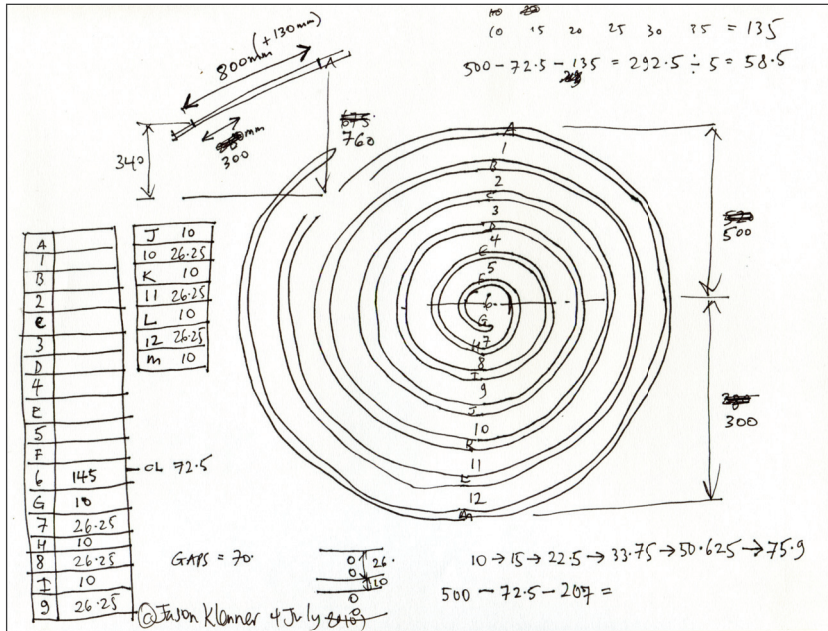 10 20
10 15 20 25 30 35 = 135
500 - 72.5 - 135 = 292.5 ÷ 5 = 58.5
800mm (+130mm)
A
675
760
mm
300
340
A
1
B
2
C
3
D
4
E
5
F
6
G
7
H
8
I
9
J
10
K
11
L
12
M
500
300
A
1
B
2
C
3
D
4
E
5
F
6 145 CL 72.5
G 10
7 26.25
H 10
8 26.25
I 10
9 26.25
J 10
10 26.25
K 10
11 26.25
L 10
12 26.25
M 10
GAPS = 70.
26.
10
10 → 15 → 22.5 → 33.75 → 50.625 → 75.9
500 - 72.5 - 207 =
@Jason Klenner 4 July